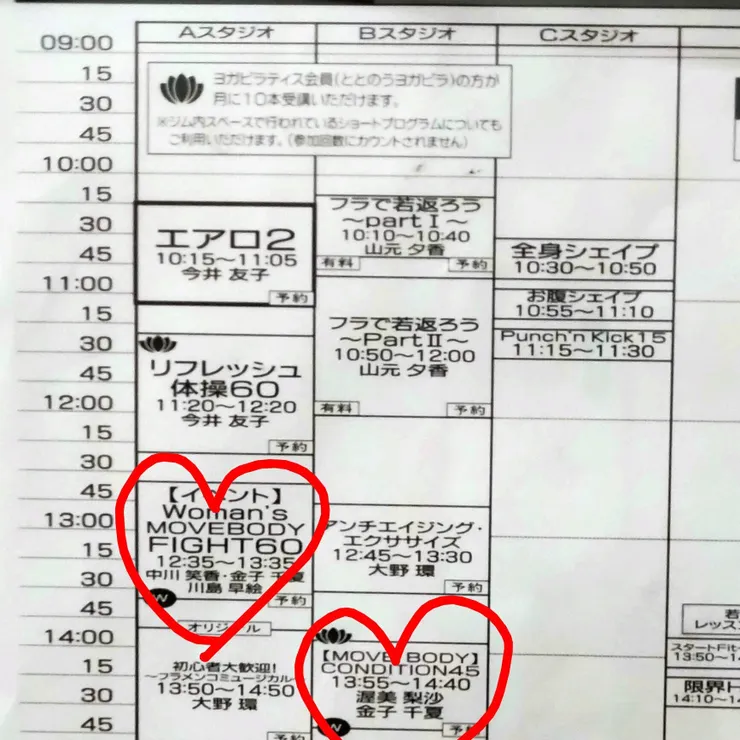 Aスタジオ
Bスタジオ
Cスタジオ
09:00
15
30
45
10:00
15
30
45
11:00
15
30
45
12:00
15
30
45
13:00
15
30
45
14:00
15
30
45
ヨガピラティス会員(ととのうヨガピラ)の方が
月に10本受講いただけます。
※ジム内スペースで行われているショートプログラムについても
ご利用いただけます。(参加回数にカウントされません)
エアロ2
10:15〜11:05
今井 友子
予約
リフレッシュ
体操60
11:20〜12:20
今井 友子
予約
【イベント】
Woman's
MOVEBODY
FIGHT60
12:35〜13:35
中川 笑香・金子 千夏
川島 早絵
W
予約
オリジナル
初心者大歓迎!
〜フラメンコミュージカル〜
13:50〜14:50
大野 環
予約
フラで若返ろう
〜partⅠ〜
10:10〜10:40
山元 夕香
有料
予約
フラで若返ろう
〜PartⅡ〜
10:50〜12:00
山元 夕香
有料
予約
アンチエイジング・
エクササイズ
12:45〜13:30
大野 環
予約
【MOVE BODY】
CONDITION45
13:55〜14:40
渥美 梨沙
金子 千夏
W
予約
全身シェイプ
10:30〜10:50
お腹シェイプ
10:55〜11:10
Punch'n Kick15
11:15〜11:30
若
レッス
スタートFit
13:50〜14
限界
14:10〜14